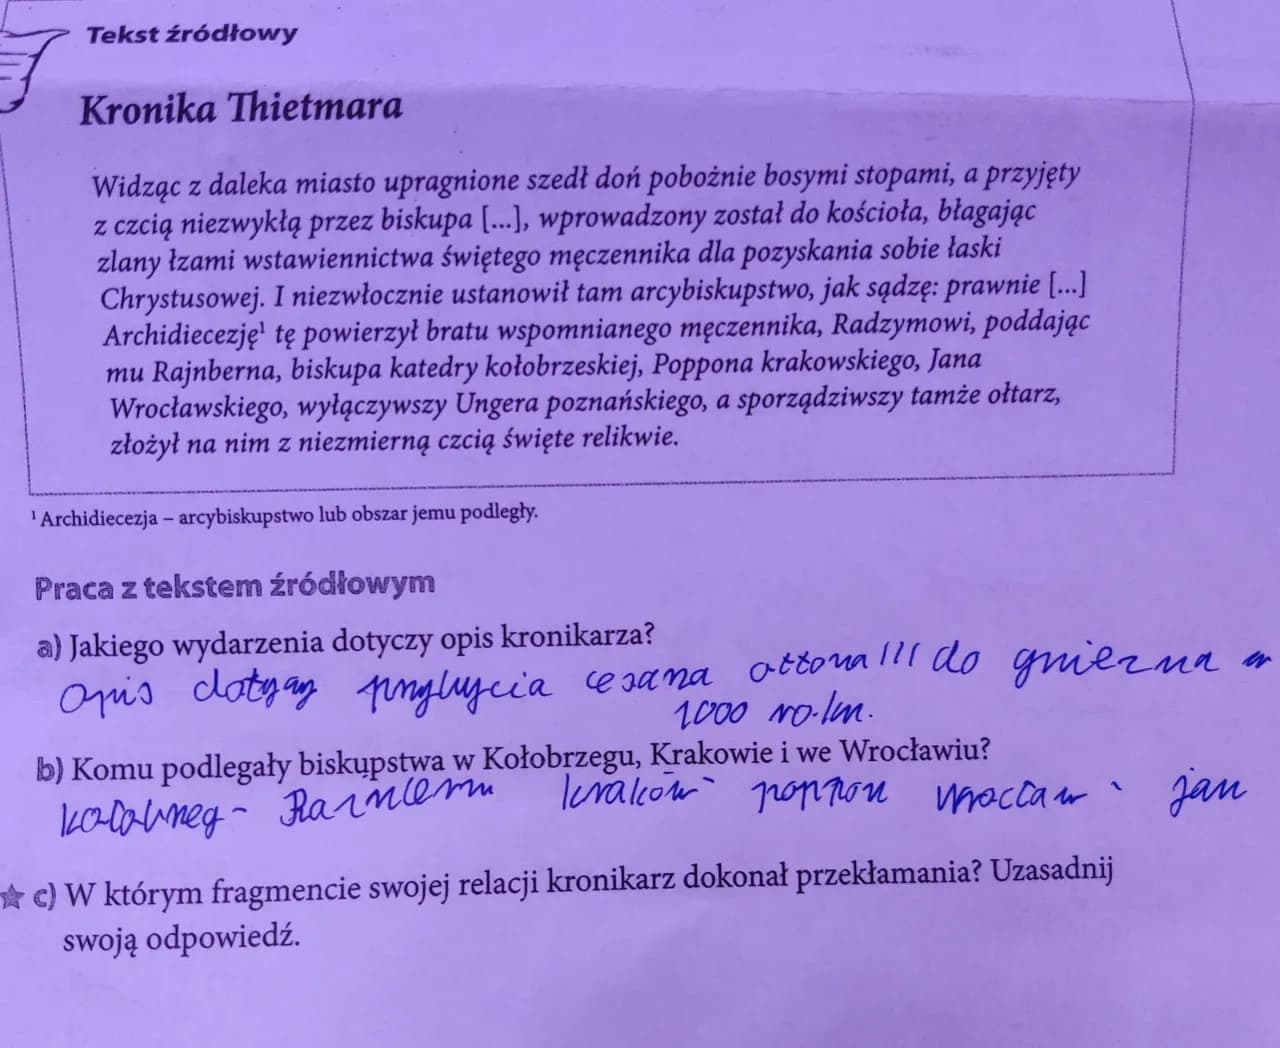 Tekst źródłowy
Kronika Thietmara
Widząc z daleka miasto upragnione szedł doń pobożnie bosymi stopami, a przyjęty
z czcią niezwykłą przez biskupa [...], wprowadzony został do kościoła, błagając
zlany łzami wstawiennictwa świętego męczennika dla pozyskania sobie łaski
Chrystusowej. I niezwłocznie ustanowił tam arcybiskupstwo, jak sądzę: prawnie [...]
Archidiecezję¹ tę powierzył bratu wspomnianego męczennika, Radzymowi, poddając
mu Rajnberna, biskupa katedry kołobrzeskiej, Poppona krakowskiego, Jana
Wrocławskiego, wyłączywszy Ungera poznańskiego, a sporządziwszy tamże ołtarz,
złożył na nim z niezmierną czcią święte relikwie.
¹ Archidiecezja – arcybiskupstwo lub obszar jemu podległy.
Praca z tekstem źródłowym
a) Jakiego wydarzenia dotyczy opis kronikarza?
opis dotyczy przybycia cesarza ottona III do gniezna w
1000 
b) Komu podlegały biskupstwa w Kołobrzegu, Krakowie i we Wrocławiu?
kołobrzeg - kraków - poppon wrocław - jan
c) W którym fragmencie swojej relacji kronikarz dokonał przekłamania? Uzasadnij
swoją odpowiedź.